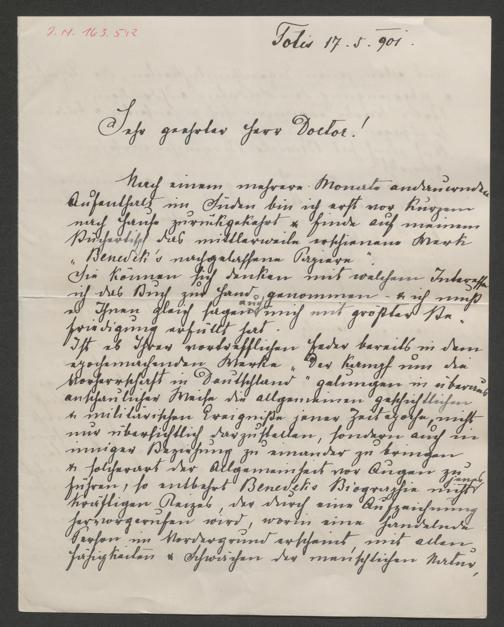 J. N. 163.542
Totis 17. 5. 901.
Sehr geehrter Herr Doctor!
Nach einem mehrere Monate andauernden
Aufenthalt im Süden bin ich erst vor Kurzem
nach Hause zurückgekehrt & finde auf meinem
Büchertisch das mittlerweile erschienene Werk
„Benedek's nachgelassene Papiere".
Sie können sich denken mit welchem Interesse
ich das Buch zur Hand genommen - & ich muß
es Ihnen gleich sagen, auch mich mit größter Be"
friedigung erfüllt hat.
Ist es Ihrer vortrefflichen Feder bereits in dem
epochemachenden Werke „Der Kampf um die
Vorherrschaft in Deutschland" gelungen in überaus
anschaulicher Weise die allgemeinen geschichtlichen
& militärischen Ereigniße jener Zeitepoche, nicht
nur übersichtlich darzustellen, sondern auch in
inniger Beziehung zu einander zu bringen
& solcherart der Allgemeinheit vor Augen zu
führen, so entbehrt Benedeks Biographie nicht jenes
kräftigen Reizes, der durch eine Aufzeichnung
hervorgerufen wird, worin eine handelnde
Person im Vordergrund erscheint mit allen
Fähigkeiten & Schwächen der menschlichen Natur,